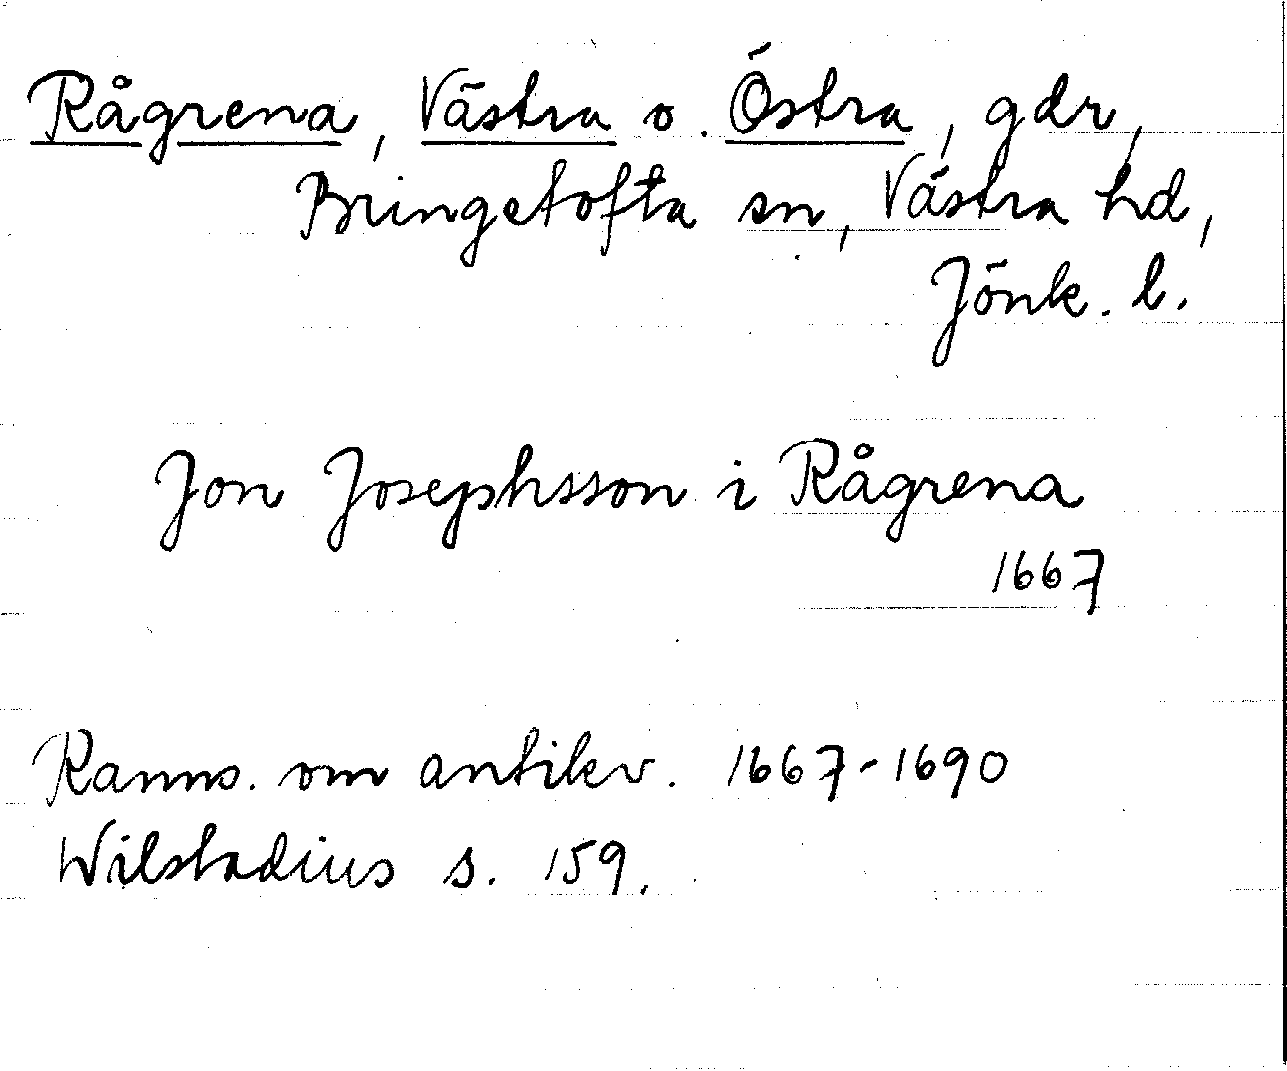 Rågrena, Västra o. Östra, gdr,
Bringetofta sn, Västra hd,
Jönk. l.
Jon Josephsson i Rågrena
1667
Ranns. om antikv. 1667-1690
Wilstadius s. 159.